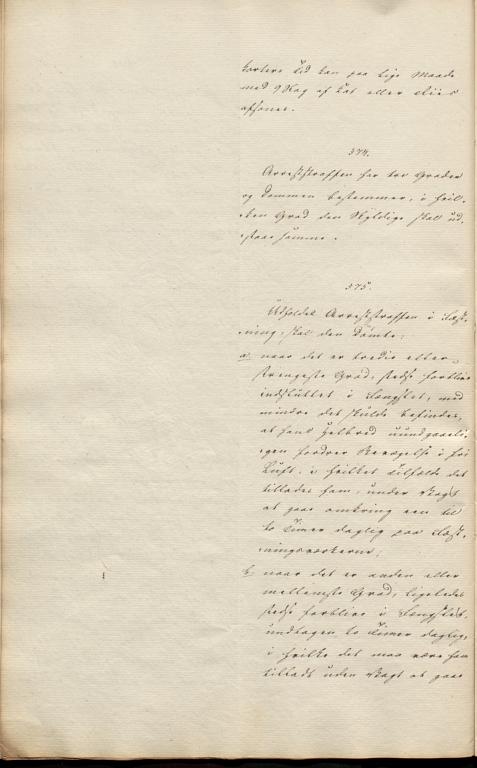 kortere Tid kan paa lige Maade
med 9 Slag af Kat eller Riis
afsones.
374.
Arreststraffen har tre Grader
og Dommen bestemmer, i hvil-
-ken Grad den Skyldige skal ud-
-staae samme.
375.
Udholdes Arreststraffen i Fæst-
-ning, skal den Dømte,
a, naar det er tredie eller
strengeste Grad, stedse forblive
indsluttet i Fængslet, med
mindre det skulde befindes,
at hans Helbred uundgaaeli-
-gen fordrer Bevægelse i fri
Luft, i hvilket Tilfælde det
tillades ham, under Vagt
at gaae omkring een til
to Timer daglig paa Fæst-
-ningsværkerne;
b, naar det er anden eller
mellemste Grad, ligeledes
stedse forblive i Fængslet,
undtagen to Timer daglig,
i hvilke det maa være ham
tilladt uden Vagt at gaae